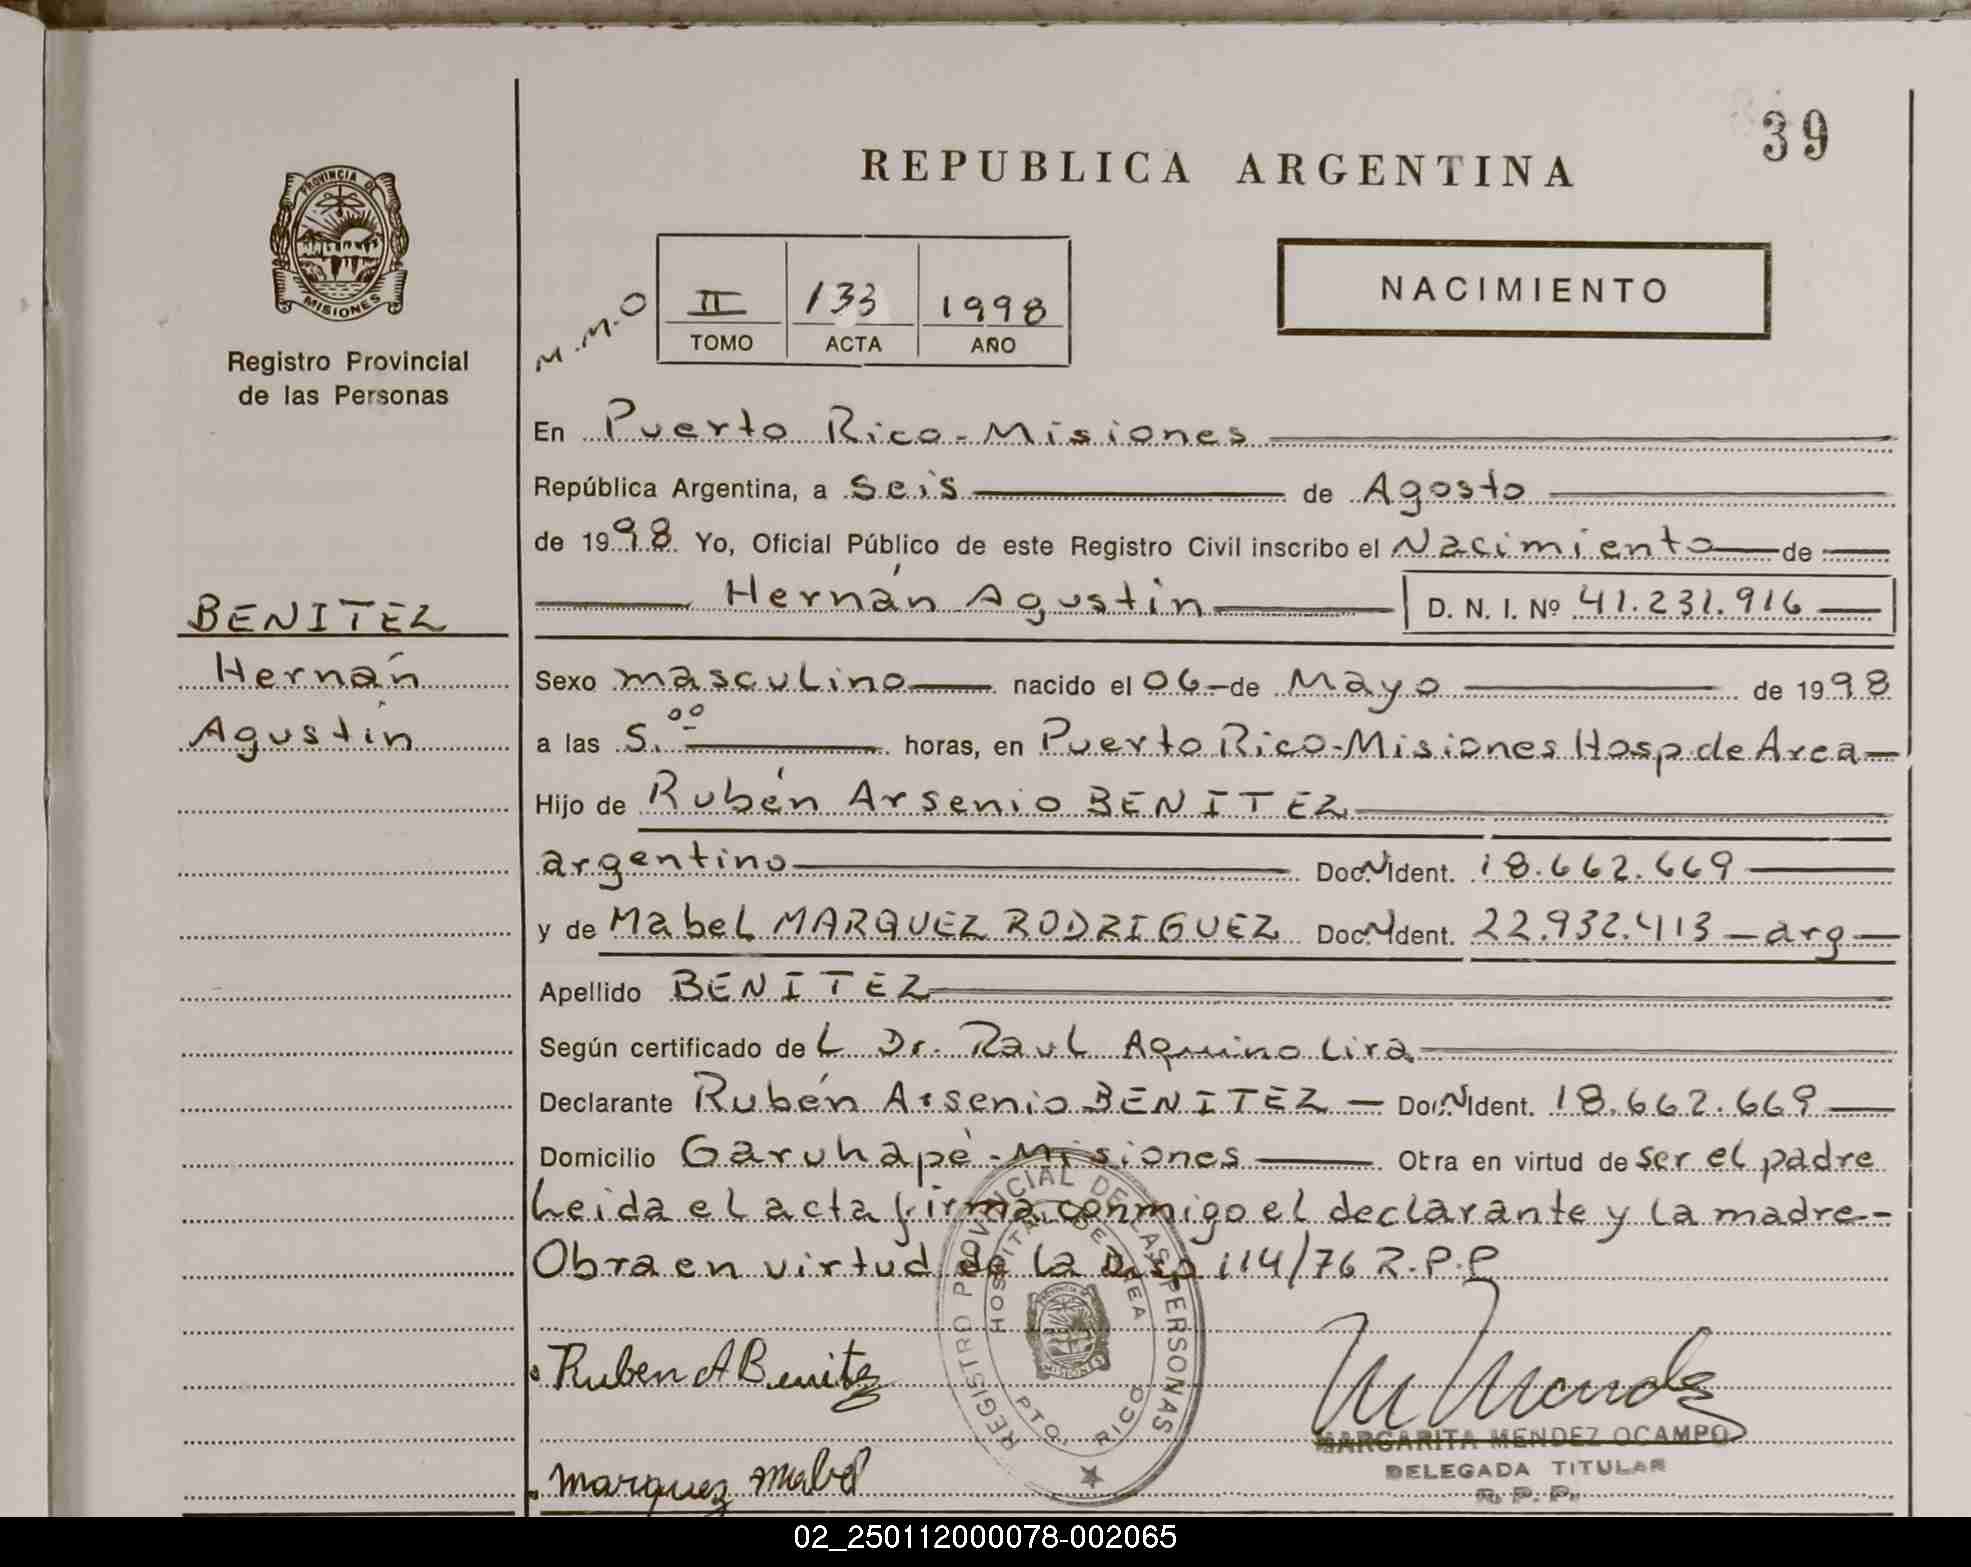 39
REPUBLICA ARGENTINA
PROVINCIA DE
MISIONES
Registro Provincial
de las Personas
M.M.O
II 133 1998
TOMO ACTA AÑO
NACIMIENTO
En Puerto Rico-Misiones
República Argentina, a seis de Agosto
de 1998 Yo, Oficial Público de este Registro Civil inscribo el Nacimiento de
Hernán Agustín D. N. I. Nº 41.231.916
BENITEZ
Hernán
Agustín
Sexo masculino nacido el 06 de Mayo de 1998
a las 5.00 horas, en Puerto Rico-Misiones Hosp. de Area
Hijo de Rubén Arsenio BENITEZ
argentino Doc.N Ident. 18.662.669
y de Mabel MARQUEZ RODRIGUEZ Doc.N Ident. 22.932.413 - arg
Apellido BENITEZ
Según certificado del Dr. Raul Aquino Lira
Declarante Rubén Arsenio BENITEZ Doc.N Ident. 18.662.669
Domicilio Garuhapé-Misiones Obra en virtud de ser el padre
Leida el acta firma conmigo el declarante y la madre-
Obra en virtud de la Disp 114/76 R.P.P
REGISTRO PROVINCIAL DE LAS PERSONAS
HOSPITAL DE AREA
MISIONES
PTO. RICO
Ruben A Benitez
M Mendez
MARGARITA MENDEZ OCAMPO
DELEGADA TITULAR
R. P. P.
Marquez Mabel
02_250112000078-002065